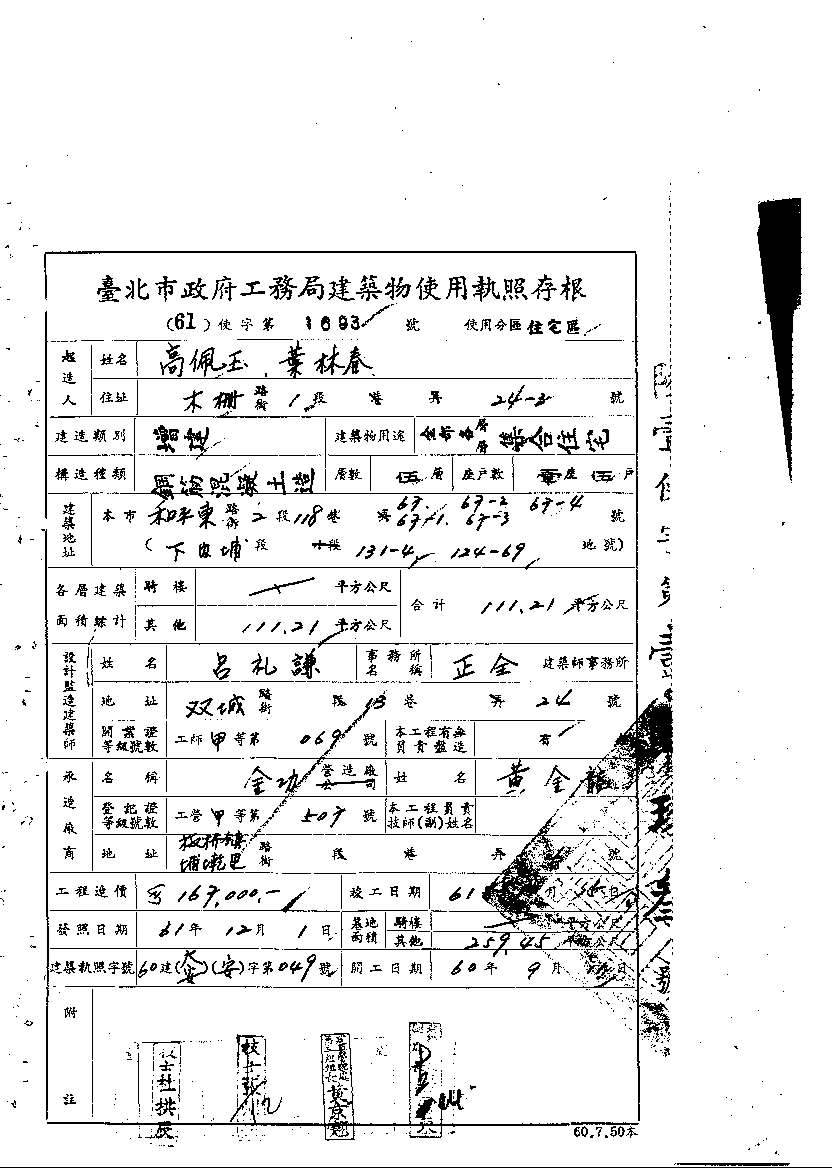 臺北市政府工務局建築物使用執照存根
(61)使字第 1693 號 使用分區 住宅區
起造人 姓名 高佩玉、葉林春
住址 木柵 路街 1段 巷 弄 24-3 號
建造類別 增建 建築物用途 全部各層 集合住宅
構造種類 鋼筋混凝土造 層數 伍層 座戶數 壹座 伍戶
建築地址 本市 和平東 路街 2段 118巷 弄 67. 67-2 67-4 號
67-1. 67-3
(下內埔 段 小段 131-4, 124-69, 地號)
各層建築面積綜計 騎樓 平方公尺 合計 111.21 平方公尺
其他 111.21 平方公尺
設計監造建築師 姓名 呂礼謙 事務所名稱 正全 建築師事務所
地址 双城 路街 段 13巷 弄 24 號
開業證等級號數 工師 甲 等第 069 號 本工程有無負責監造 有
承造廠商 名稱 金功 營造廠公司 姓名 黃金龍
登記證等級號數 工營 甲 等第 507 號 本工程負責技師(副)姓名
地址 板橋鎮 路街 段 巷 弄 號
工程造價 167,000.- 竣工日期 61 月 日
發照日期 61年 12月 1日 基地面積 騎樓 平方公尺
其他 259.45 平方公尺
建築執照字號 60建(大安)(安)字第049號 開工日期 60年 9月 日
附註
技士杜拱辰
技士
黃京魁
60.7.50本